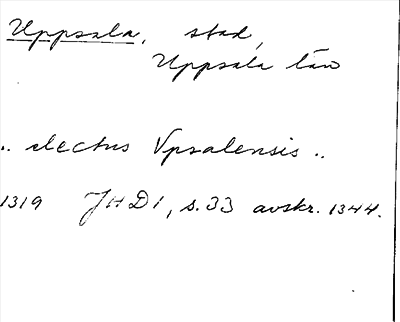 Uppsala, stad,
Uppsala län
.. electus Vpsalensis ..
1319 JHD 1, s. 33 avskr. 1344.